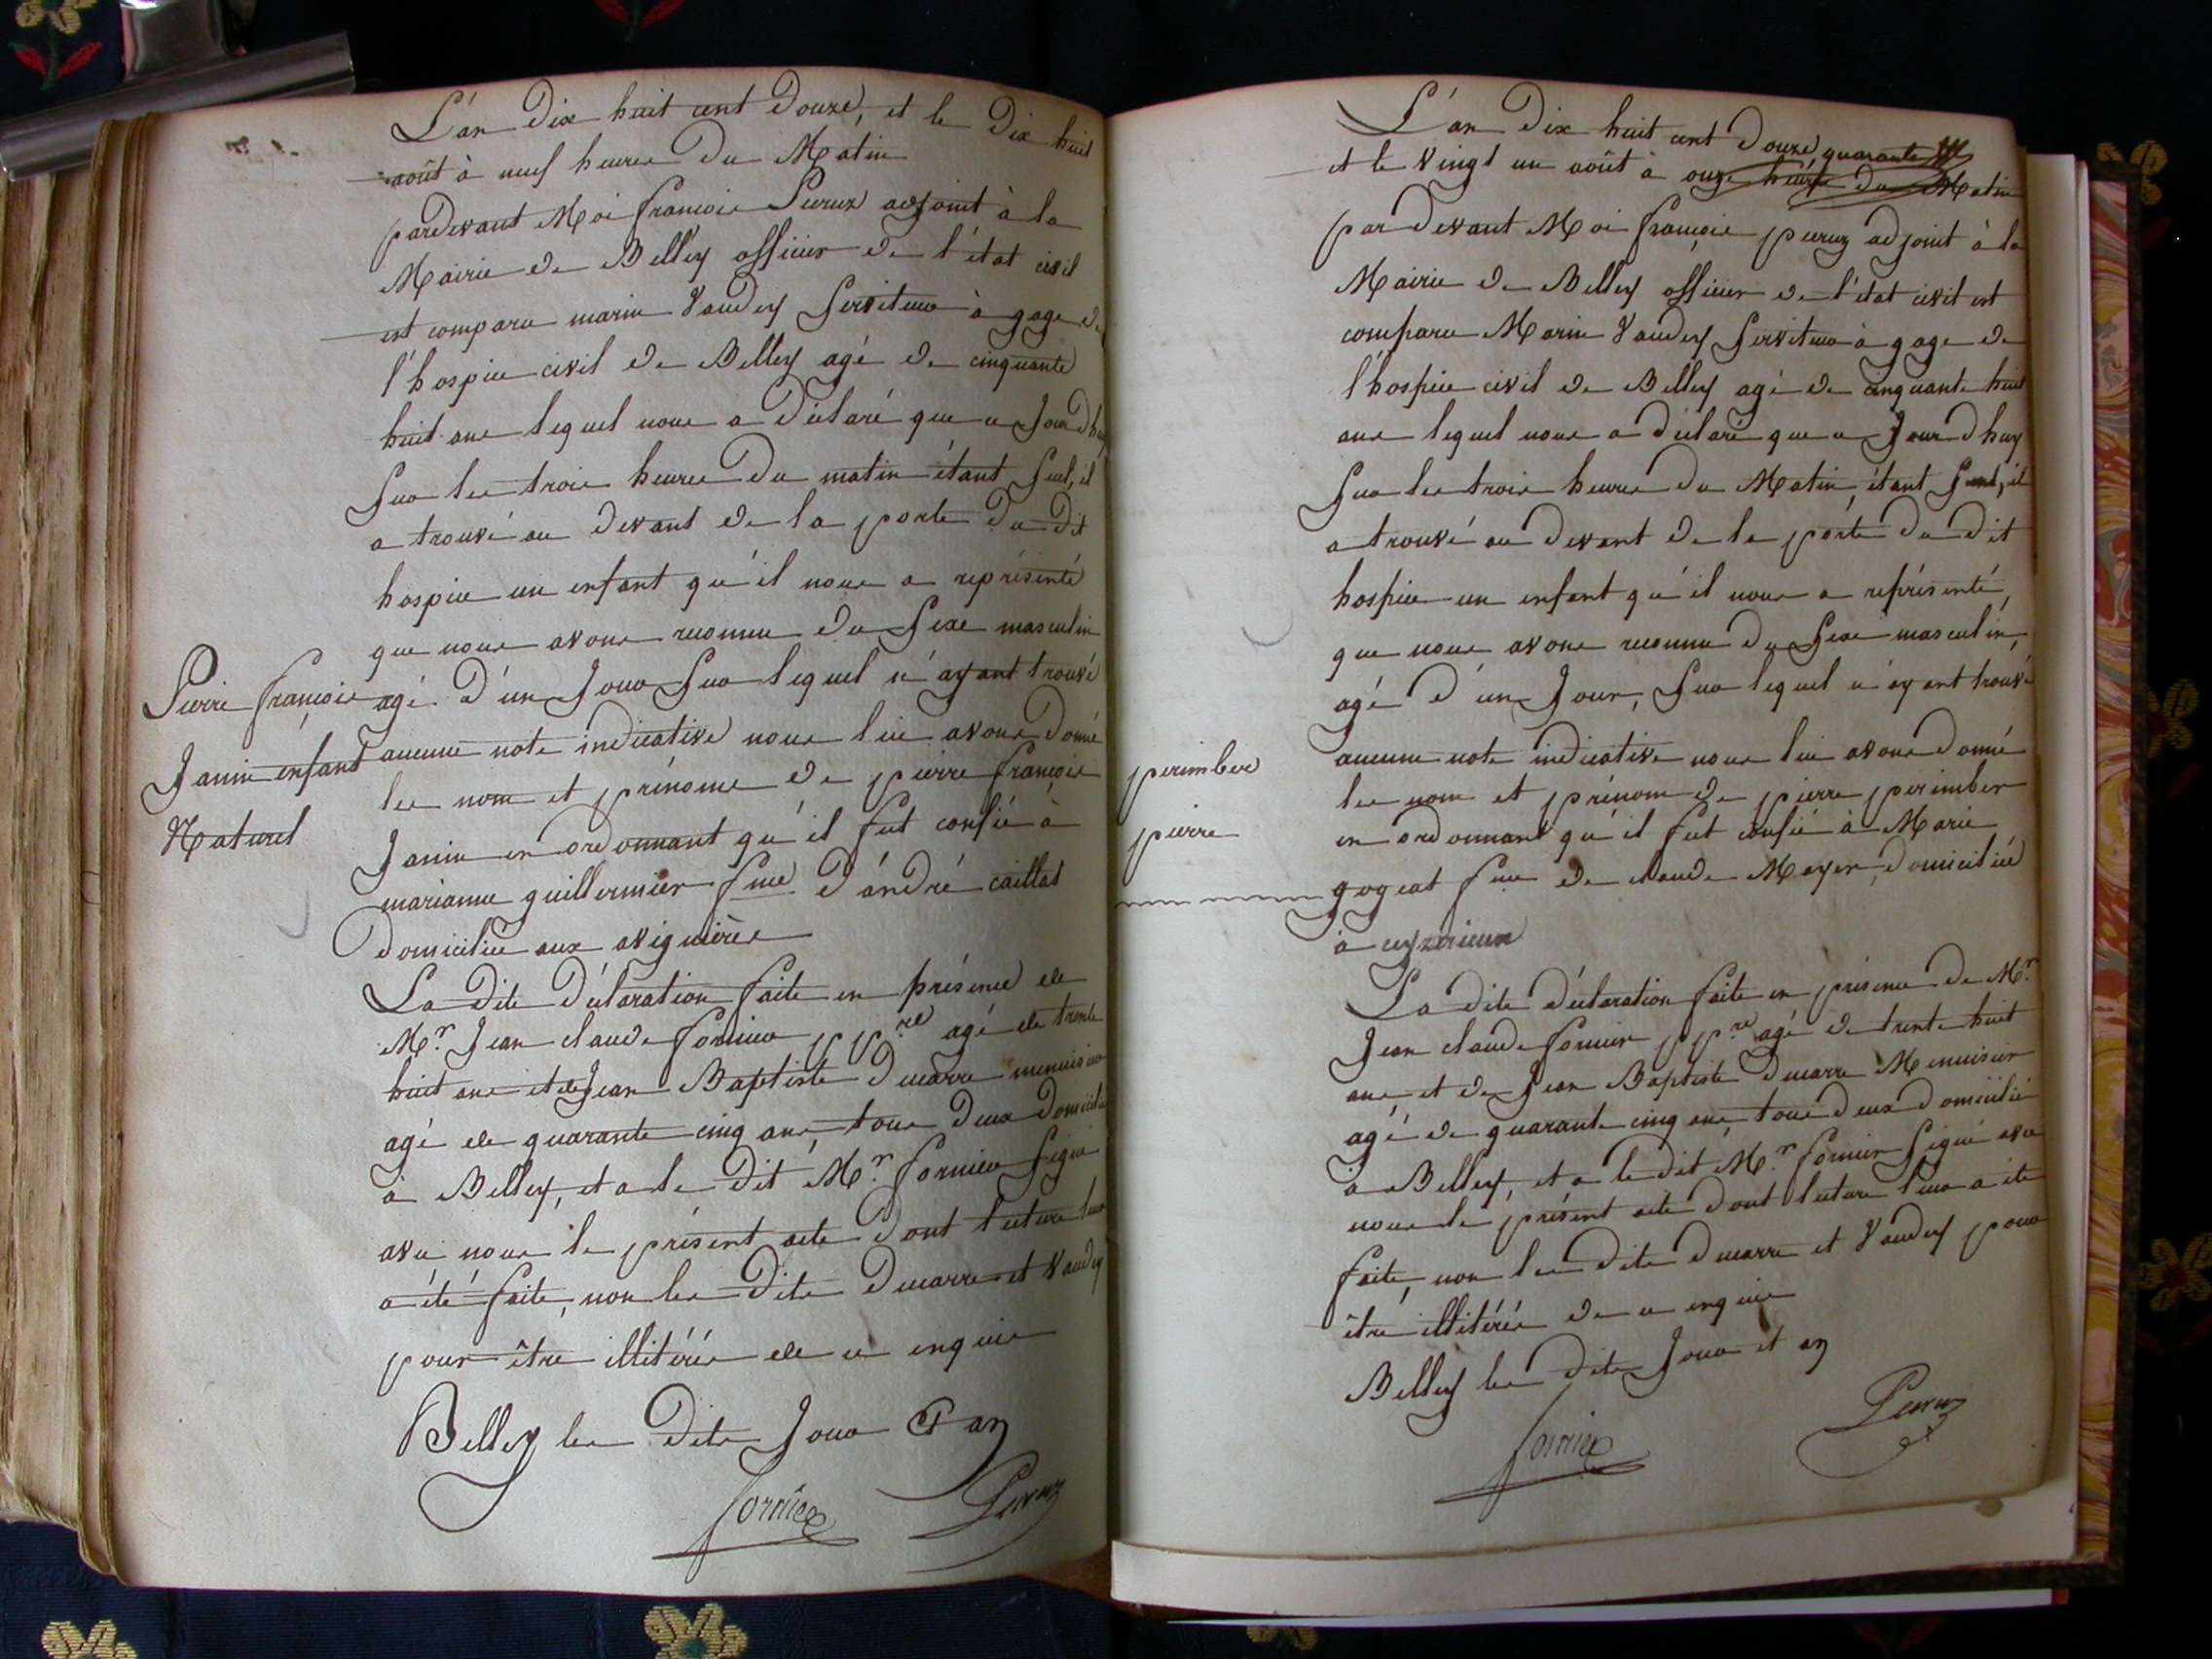 L'an Dix huit cent Douze, et le Dix huit
août à neuf heures Du Matin
pardevant Moi françois Peruz adjoint à la
Mairie De Belley officier De l'état civil
est comparu marin Vaudey Serviteur à gage De
l'hospice civil De Belley agé De cinquante
huit ans lequel nous a Déclaré que ce Jourd'hui
Sur les trois heures Du matin étant Seul, il
a trouvé au Devant De la porte Du Dit
hospice un enfant qu'il nous a représenté
que nous avons reconnu Du Sexe masculin
agé D'un Jour Sur lequel n'ayant trouvé
aucune note indicative nous lui avons Donné
les nom et prénoms De pierre françois
Janin en ordonnant qu'il fut confié à
marianne guillermier fme D'andré caillat
Domiciliée aux avignières
La Dite Déclaration faite en présence de
Mr. Jean claude fornier ppre agé de trente
huit ans et de Jean Baptiste Ducarre menuisier
agé de quarante cinq ans, tous Deux Domiciliés
à Belley, et a le Dit Mr. fornier Signé
avec nous le présent acte Dont lecture leur
a été faite, non les Dits Ducarre et Vaudey
pour être illitérés de ce enquis
Belley les Dits Jour et an
fornier Peruz
Pierre françois
Janin enfant
Naturel
L'an Dix huit cent Douze quarante
et le vingt un août à onze heures du Matin
par Devant Moi françois peruz adjoint à la
Mairie De Belley officier De l'état civil est
comparu Marin Vaudey Serviteur à gage De
l'hospice civil De Belley agé De cinquante huit
ans lequel nous a Déclaré que ce Jourd'huy
Sur les trois heures Du Matin, étant Seul, il
a trouvé au Devant De la porte Du Dit
hospice un enfant qu'il nous a représenté,
que nous avons reconnu Du Sexe masculin,
agé D'un Jour, Sur lequel n'ayant trouvé
aucune note indicative nous lui avons Donné
les nom et prénom De pierre perimber
en ordonnant qu'il fut confié à Marie
gogeat fme De claude Moyen, Domiciliée
à ceyzerieux
La Dite Déclaration faite en présence De Mr.
Jean claude fornier ppre. agé De trente huit
ans, et De Jean Baptiste Ducarre Menuisier
agé De quarante cinq ans, tous Deux Domiciliés
à Belley, et a le dit Mr. fornier Signé avec
nous le présent acte Dont lecture leur a été
faite, non les Dits Ducarre et Vaudey pour
être illitérés De ce enquis
Belley les Dits Jour et an
fornier Peruz
perimber
pierre